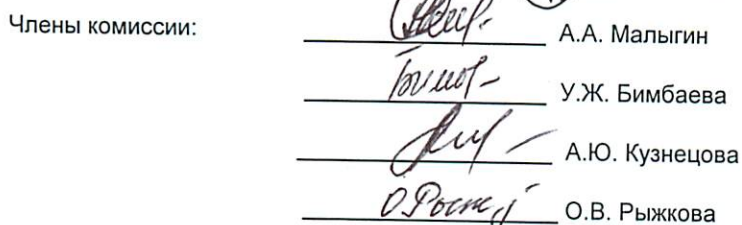 Члены комиссии: А.А. Малыгин
У.Ж. Бимбаева
А.Ю. Кузнецова
О.В. Рыжкова